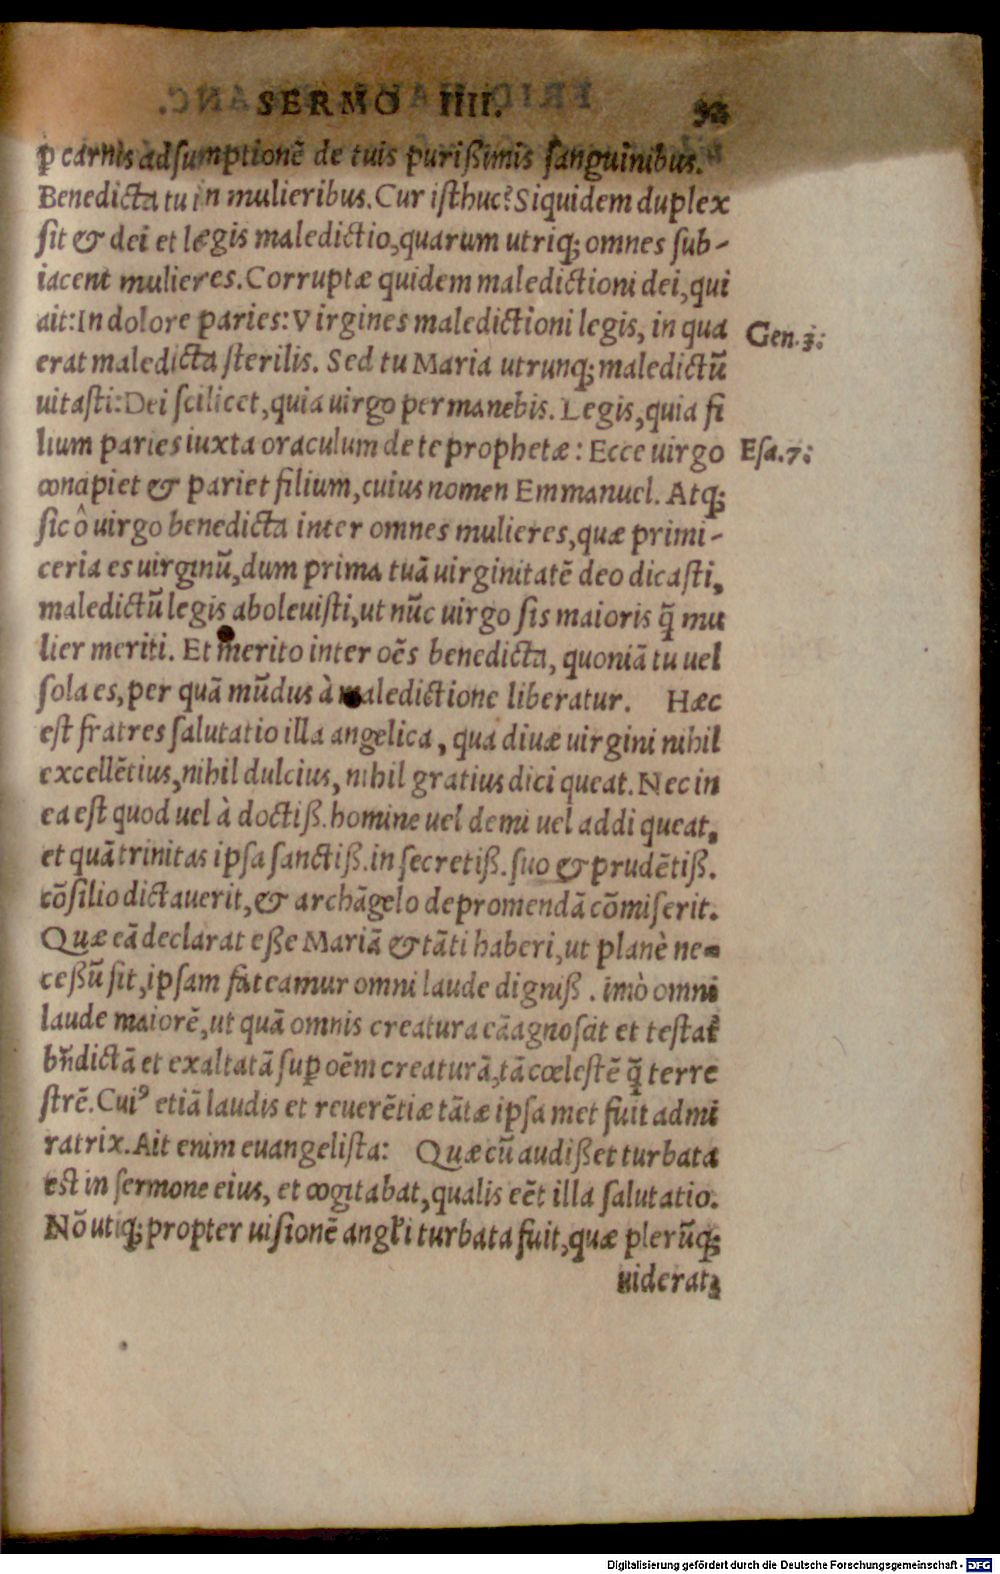 SERMO IIII. 52
ꝑ carnis adsumptionē de tuis purißimis sanguinibus.
Benedicta tu in mulieribus. Cur isthuc? Siquidem duplex
sit & dei et legis maledictio, quarum utriqꝫ omnes sub-
iacent mulieres. Corruptæ quidem maledictioni dei, qui
ait: In dolore paries: Virgines maledictioni legis, in qua
Gen. 3.
erat maledicta sterilis. Sed tu Maria utrunqꝫ maledictū
uitasti: Dei scilicet, quia uirgo permanebis. Legis, quia fi
lium paries iuxta oraculum de te prophetæ: Ecce uirgo
Esa. 7.
concipiet & pariet filium, cuius nomen Emmanuel. Atqꝫ
sic ô uirgo benedicta inter omnes mulieres, quæ primi-
ceria es uirginū, dum prima tuā uirginitatē deo dicasti,
maledictū legis aboleuisti, ut nūc uirgo sis maioris q̄ mu
lier meriti. Et merito inter oēs benedicta, quoniā tu uel
sola es, per quā mūdus à maledictione liberatur. Hæc
est fratres salutatio illa angelica, qua diuæ uirgini nihil
excellētius, nihil dulcius, nihil gratius dici queat. Nec in
ea est quod uel à doctiß. homine uel demi uel addi queat,
et quā trinitas ipsa sanctiß. in secretiß. suo & prudētiß.
cōsilio dictauerit, & archāgelo depromendā cōmiserit.
Quæ eā declarat eße Mariā & tāti haberi, ut planè ne-
ceßū sit, ipsam fateamur omni laude digniß. imò omni
laude maiorē, ut quā omnis creatura cā agnoscit et testat̃
bn̄dictā et exaltatā suꝑ oēm creaturā, tā cœlestē q̄ terre
strē. Cuiꝰ etiā laudis et reuerētiæ tātæ ipsa met fuit admi
ratrix. Ait enim euangelista: Quæ cū audißet turbata
est in sermone eius, et cogitabat, qualis eēt illa salutatio.
Nō utiqꝫ propter uisionē angl̃i turbata fuit, quæ plerūqꝫ
uiderat,
Digitalisierung gefördert durch die Deutsche Forschungsgemeinschaft - DFG